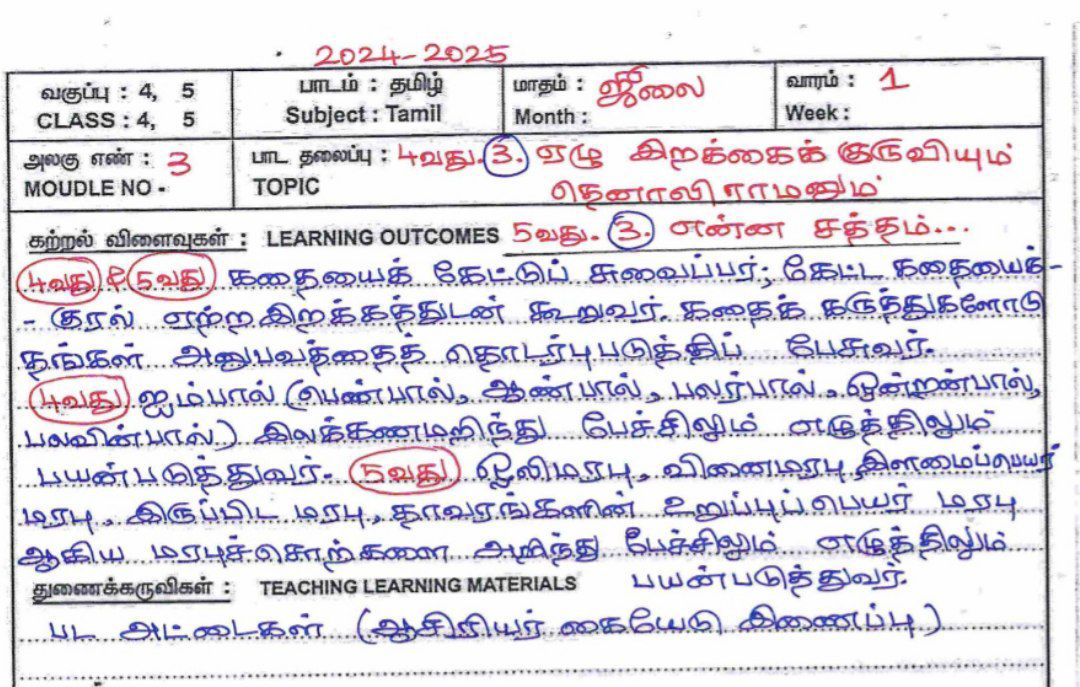 2024-2025
வகுப்பு : 4, 5
CLASS : 4, 5
பாடம் : தமிழ்
Subject : Tamil
மாதம் : ஜூலை
Month :
வாரம் : 1
Week :
அலகு எண் : 3
MOUDLE NO -
பாட தலைப்பு : 4வது. 3. ஏழு இறக்கைக் குருவியும்
TOPIC தெனாலிராமனும்
கற்றல் விளைவுகள் : LEARNING OUTCOMES 5வது. 3. என்ன சத்தம்...
4வது & 5வது கதையைக் கேட்டுப் சுவைப்பர்; கேட்ட கதையைக்-
- குரல் ஏற்ற இறக்கத்துடன் கூறுவர். கதைக் கருத்துகளோடு
தங்கள் அனுபவத்தைத் தொடர்புபடுத்திப் பேசுவர்.
4வது ஐம்பால் (பெண்பால், ஆண்பால், பலர்பால், ஒன்றன்பால்,
பலவின்பால்) இலக்கணமறிந்து பேச்சிலும் எழுத்திலும்
பயன்படுத்துவர். 5வது ஒலிமரபு, வினைமரபு, இளமைப்பெயர்
மரபு, இருப்பிட மரபு, தாவரங்களின் உறுப்புப்பெயர் மரபு
ஆகிய மரபுச்சொற்களை அறிந்து பேச்சிலும் எழுத்திலும்
பயன்படுத்துவர்.
துணைக்கருவிகள் : TEACHING LEARNING MATERIALS
பட அட்டைகள் (ஆசிரியர் கையேடு இணைப்பு)